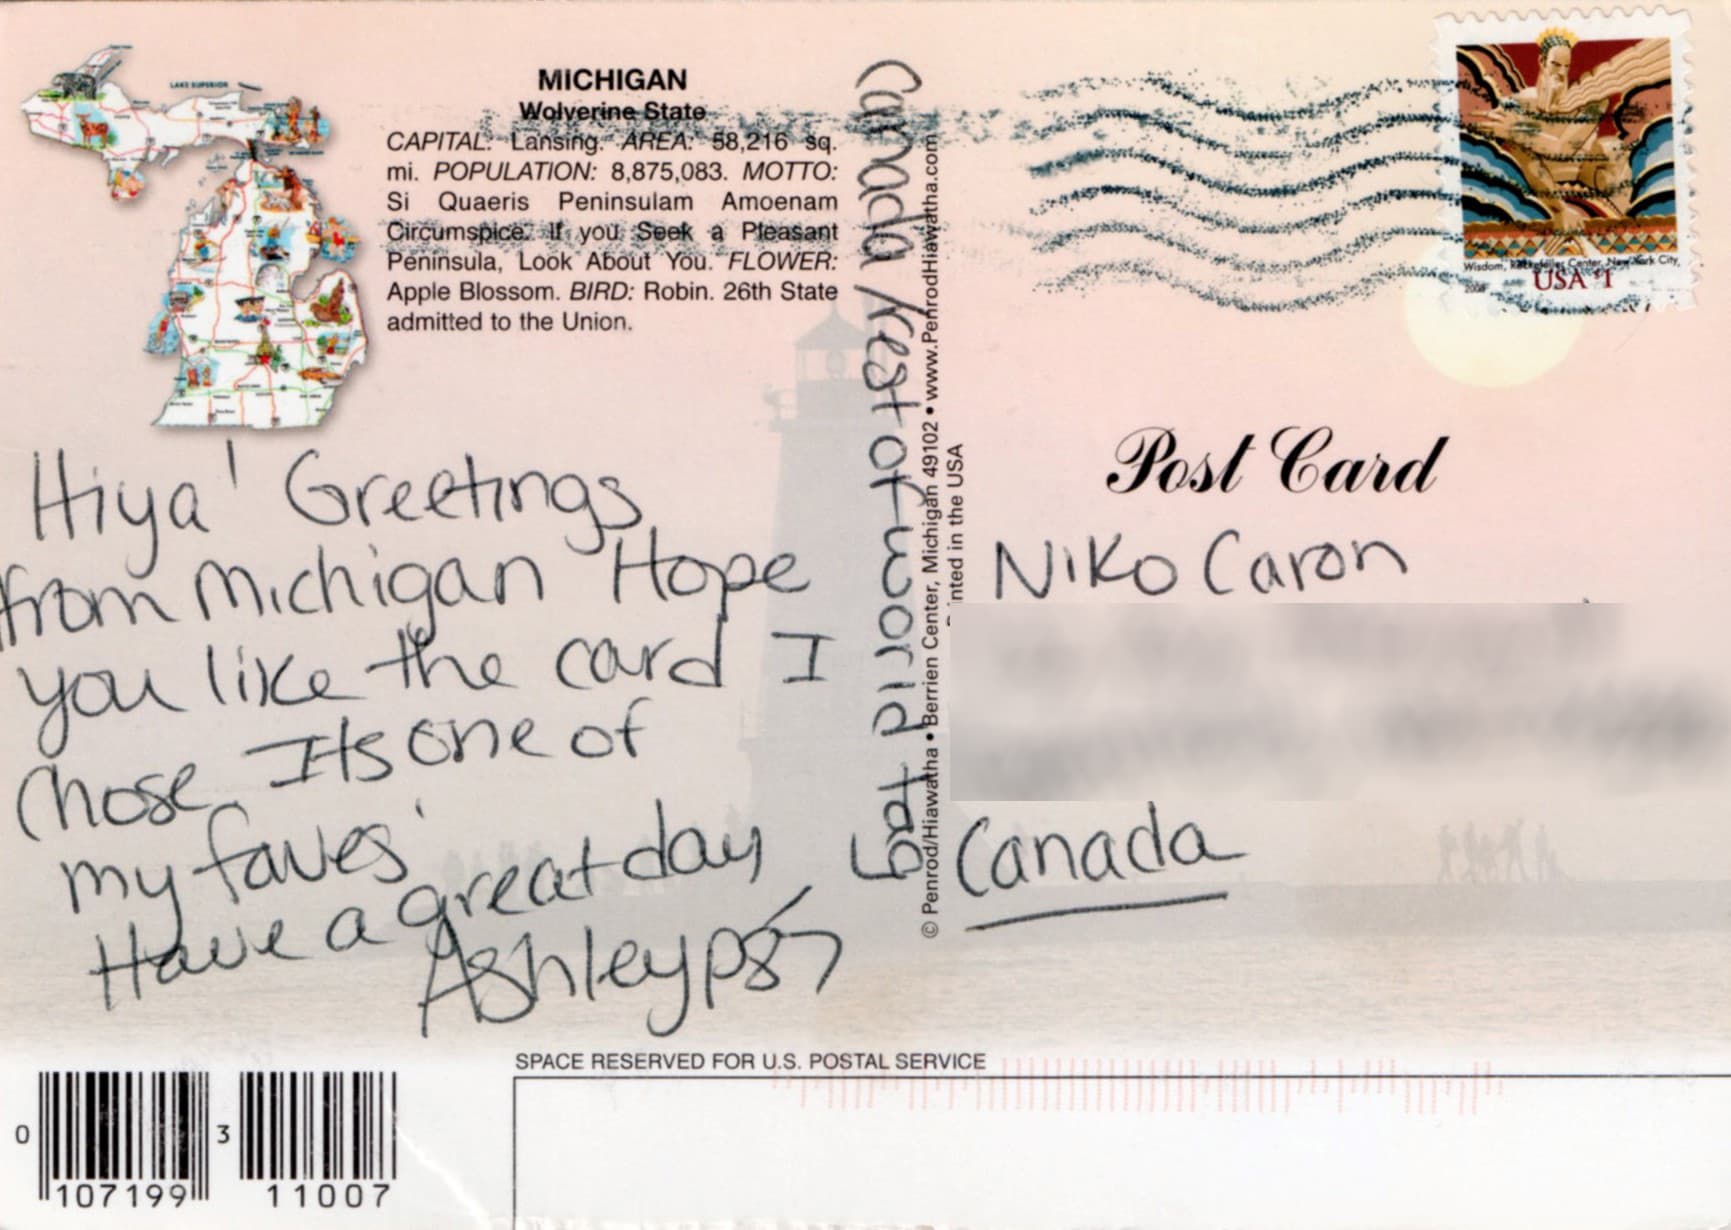 MICHIGAN
Wolverine State
CAPITAL: Lansing. AREA: 58,216 sq.
mi. POPULATION: 8,875,083. MOTTO:
Si Quaeris Peninsulam Amoenam
Circumspice. If you Seek a Pleasant
Peninsula, Look About You. FLOWER:
Apple Blossom. BIRD: Robin. 26th State
admitted to the Union.
LAKE SUPERIOR
Hiya! Greetings
from Michigan Hope
you like the card I
chose. Its one of
my faves!
Have a great day
Ashley ps
Canada
© Penrod/Hiawatha • Berrien Center, Michigan 49102 • www.PenrodHiawatha.com
Printed in the USA
Wisdom, Rockefeller Center, New York City
USA $1
Post Card
Niko Caron
Canada
SPACE RESERVED FOR U.S. POSTAL SERVICE
0 107199 3 11007